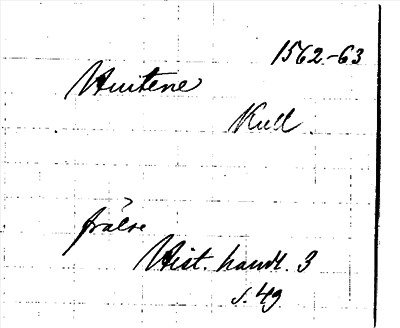 1562-63
Huitene
Kull.
frälse
Hist. handl. 3
s. 49